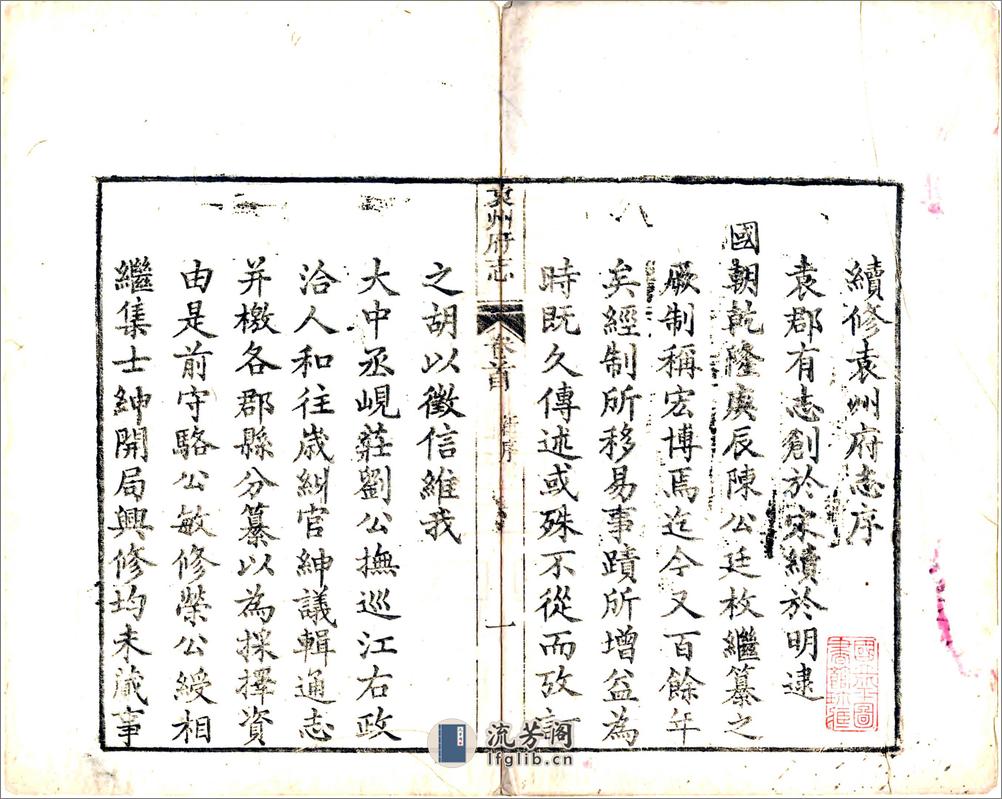 續修袁州府志序
袁郡有志創於宋續於明逮
國朝乾隆庚辰陳公廷枚繼纂之
厥制稱宏博焉迄今又百餘年
矣經制所移易事蹟所增益為
時既久傳述或殊不從而攷訂
袁州府志
卷首
序
一
之胡以徵信維我
大中丞峴莊劉公撫巡江右政
洽人和往歲糾官紳議輯通志
并檄各郡縣分纂以為採擇資
由是前守駱公敏修榮公綬相
繼集士紳開局興修均未蕆事
流芳閣
lfglib.cn